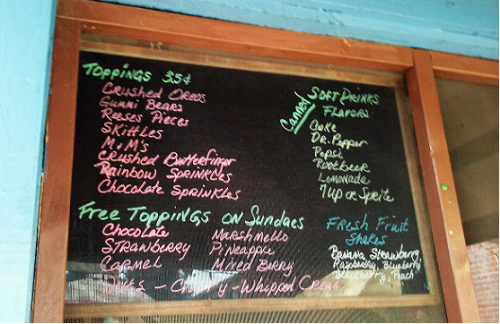 Toppings 35¢
Crushed Oreos
Gummi Bears
Reeses Pieces
Skittles
M+M's
Crushed Butterfinger
Rainbow Sprinkles
Chocolate Sprinkles
Free Toppings on Sundaes
Chocolate Marshmello
Strawberry Pineapple
Carmel Mixed Birry
Nuts - Cherry - Whipped Cream
Canned
Soft Drinks
Flavors:
Coke
Dr. Pepper
Pepsi
Rootbeer
Lemonade
7up or Sprite
Fresh Fruit
Shakes
Banana, Strawberry
Raspberry, Blueberry
Peach